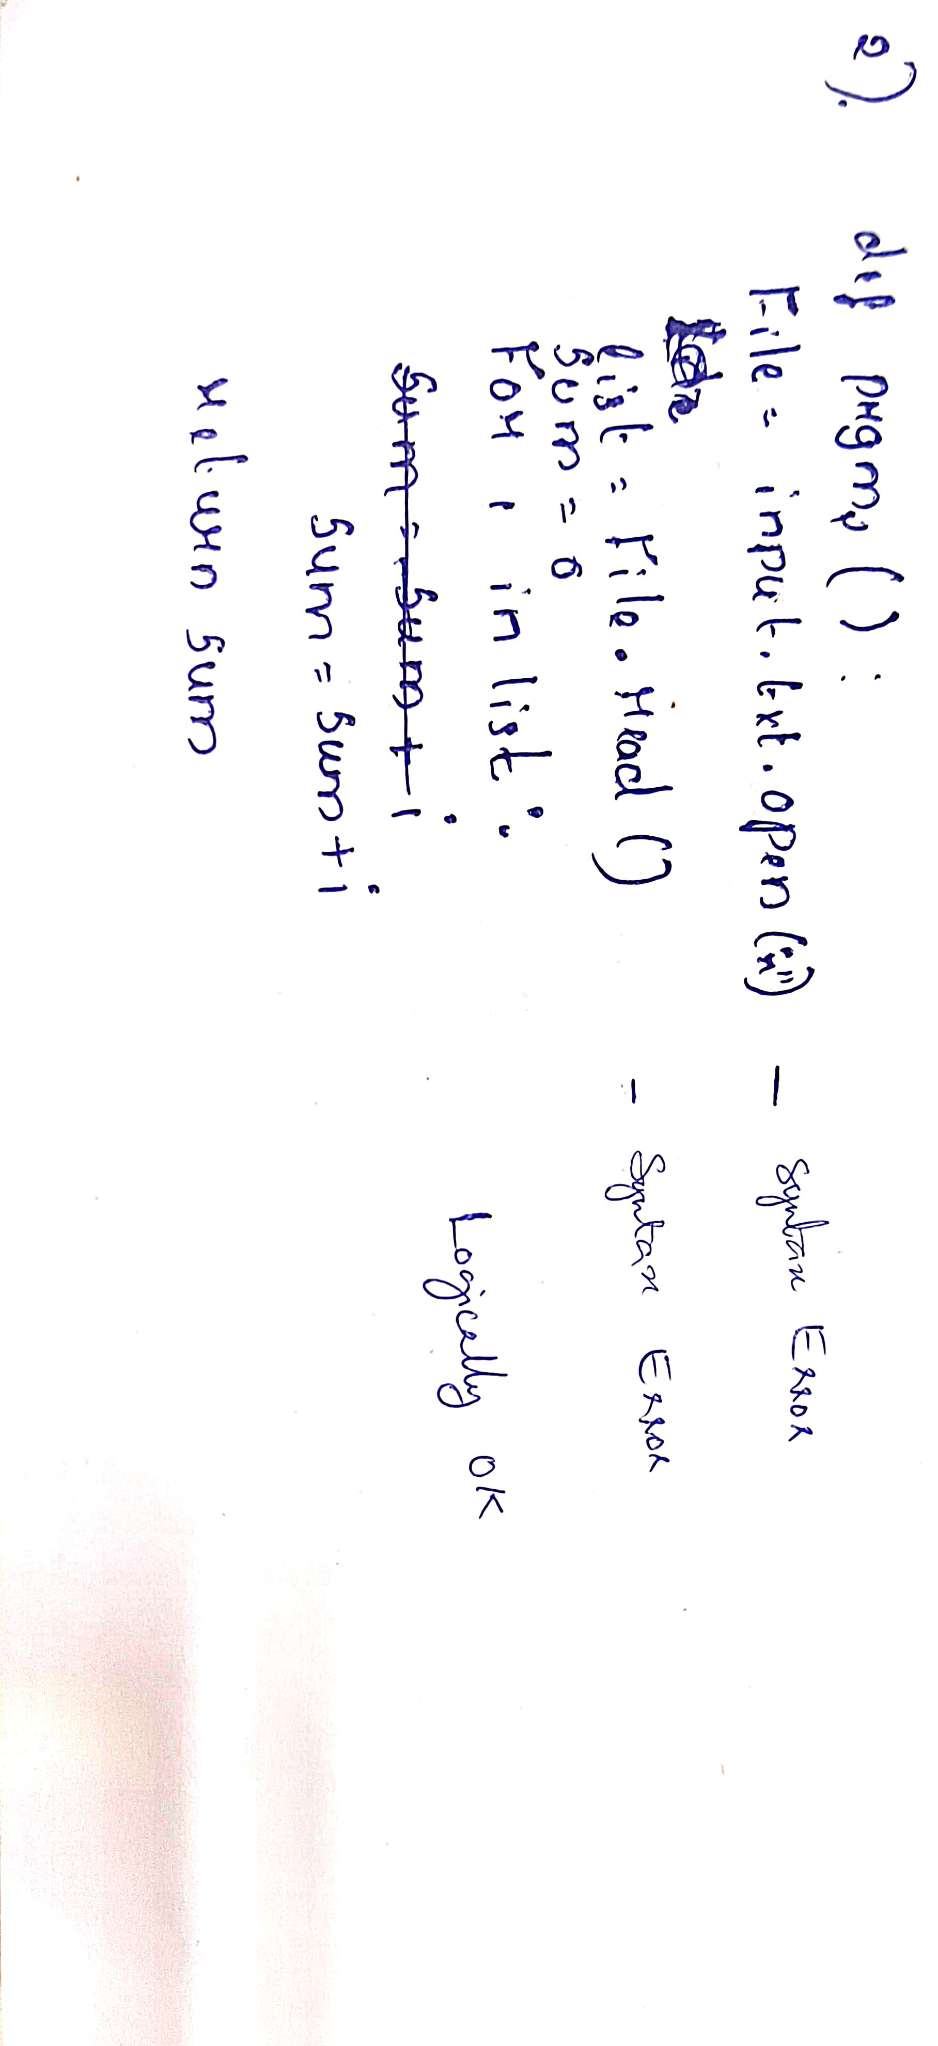 2). def prgm2 ():
File = input.txt.open ("r") - Syntax Error
list = File.read () - Syntax Error
Sum = 0
For i in list: Logically OK
Sum = Sum + i
Sum = Sum + i
return Sum